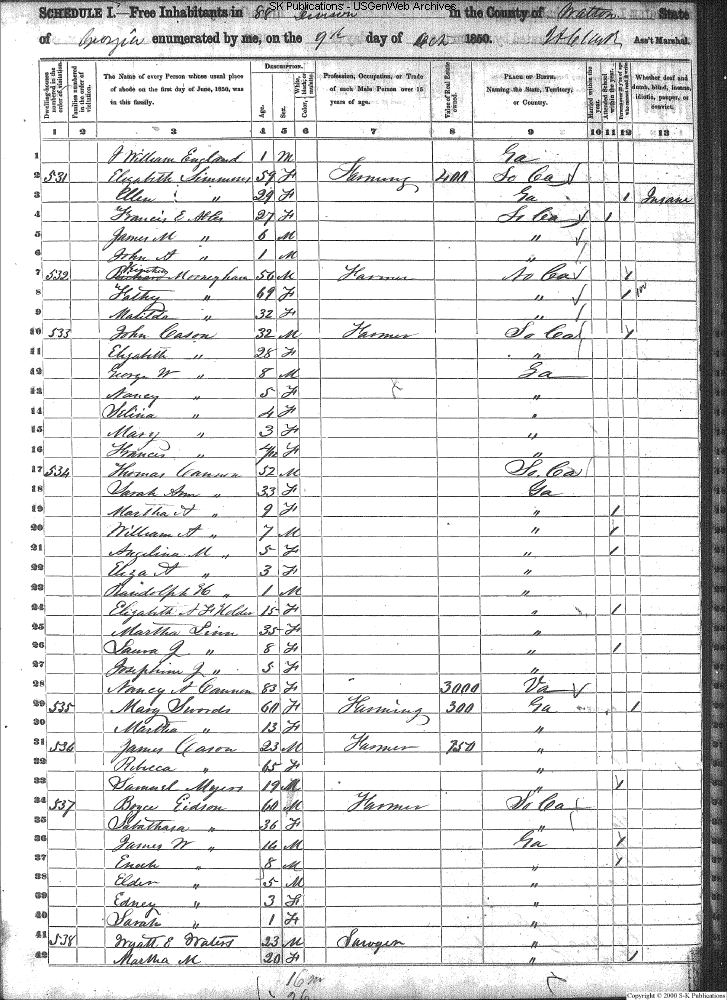 SK Publications - USGenWeb Archives
SCHEDULE I.—Free Inhabitants in 88th Division in the County of Walton State
of Georgia enumerated by me, on the 9th day of Oct 1850. Ass't Marshal.
Dwelling-houses numbered in the order of visitation.
Families numbered in the order of visitation.
The Name of every Person whose usual place of abode on the first day of June, 1850, was in this family.
DESCRIPTION.
Age.
Sex.
White, black, or mulatto.
Color,
Profession, Occupation, or Trade of each Male Person over 15 years of age.
Value of Real Estate owned.
PLACE OF BIRTH.
Naming the State, Territory, or Country.
Married within the year.
Attended School within the year.
Whether deaf and dumb, blind, insane, idiotic, pauper, or convict.
1 2 3 4 5 6 7 8 9 10 11 12 13
1 J William England 1 M Ga
2 531 Elizabeth Simmons 59 F Farming 400 So Ca
3 Ellen " 29 F Ga 1 Insane
4 Francis E Ables 27 F So Ca 1
5 James M " 6 M "
6 John A " 1 M "
7 532 Mooneyham 56 M Farmer No Ca 1
8 Fathy " 69 F " 1
9 Matilda " 32 F "
10 533 John Cason 32 M Farmer So Ca 1
11 Elizabeth " 28 F "
12 George W " 8 M Ga
13 Nancy " 5 F "
14 Selina " 4 F "
15 Mary " 3 F "
16 Francis " /12 F "
17 534 Thomas Cannon 52 M So. Ca
18 Sarah Ann " 33 F Ga
19 Martha A " 9 F " 1
20 William A " 7 M " 1
21 Angelina M " 5 F " 1
22 Eliza A " 3 F "
23 Randolph H " 1 M "
24 Elizabeth A F Holder 15 F " 1
25 Martha Linn 35 F "
26 Laura J " 8 F " 1
27 Josephine J " 5 F "
28 Nancy A Cannon 83 F 3000 Va
29 535 Mary Swords 60 F Farming 300 Ga 1
30 Martha " 13 F "
31 536 James Cason 23 M Farmer 750 "
32 Rebecca " 65 F "
33 Samuel Myers 19 M " 1
34 537 Boyce Eidson 60 M Farmer So Ca
35 Sabathara " 36 F "
36 James W " 16 M Ga 1
37 Enoch " 8 M " 1
38 Elder " 5 M "
39 Edney " 3 F "
40 Sarah " 1 F "
41 538 Wyatt E Waters 23 M "
42 Martha M 20 F " 1
16 m
26
Copyright © 2000 S-K Publications